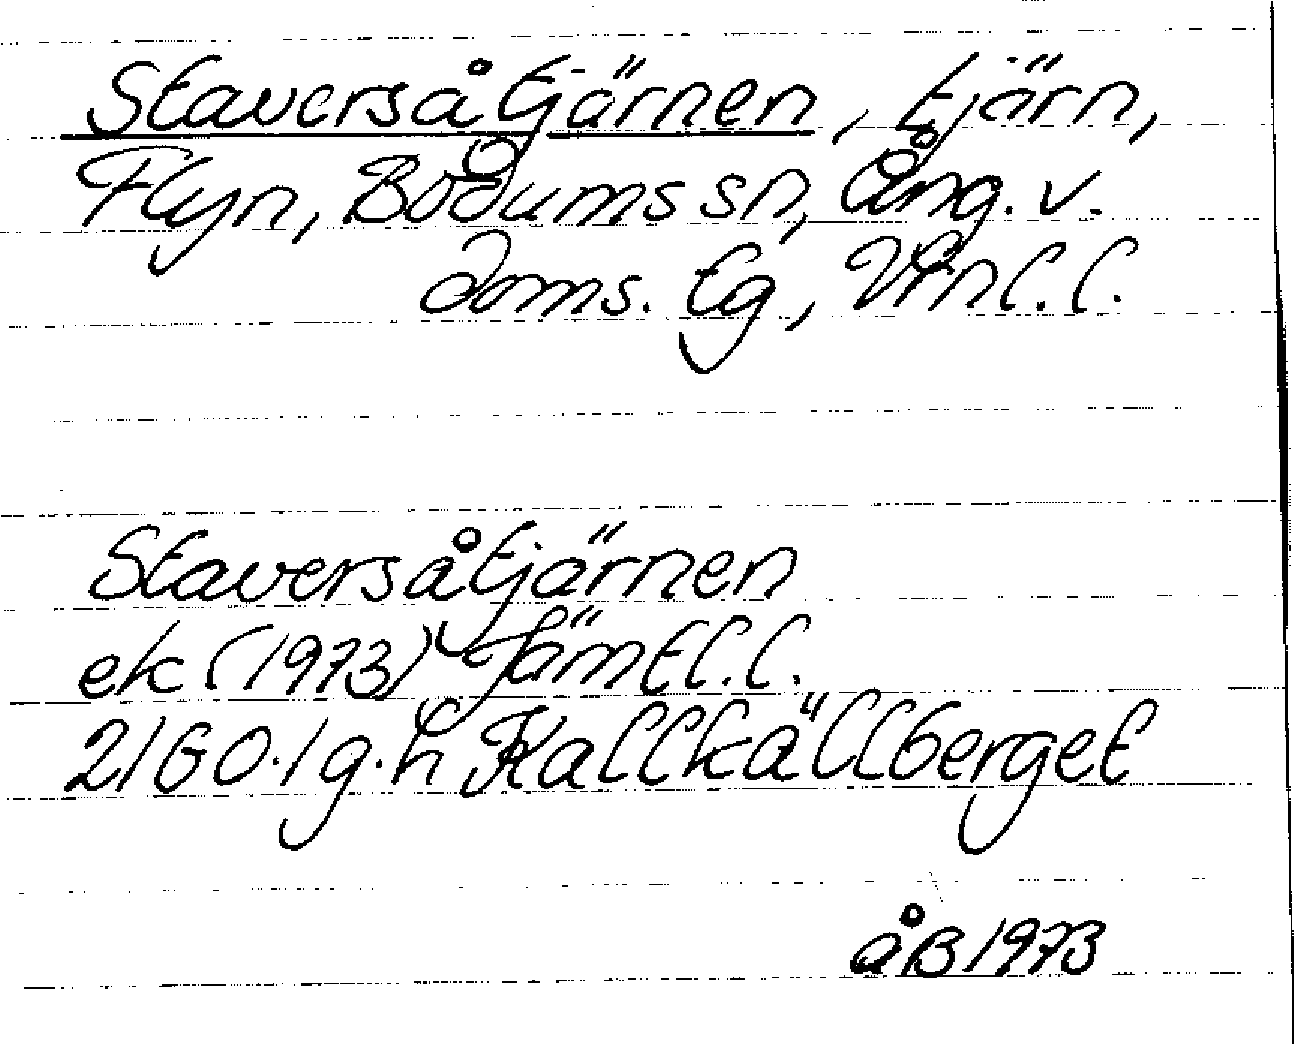 Staversåtjärnen, tjärn,
Flyn, Bodums sn, Ång. v.
doms. tg, Vrnl. l.
Staversåtjärnen
ek (1973) Jämtl. l.
21G0.1g.h Kallkällberget
åB 1973